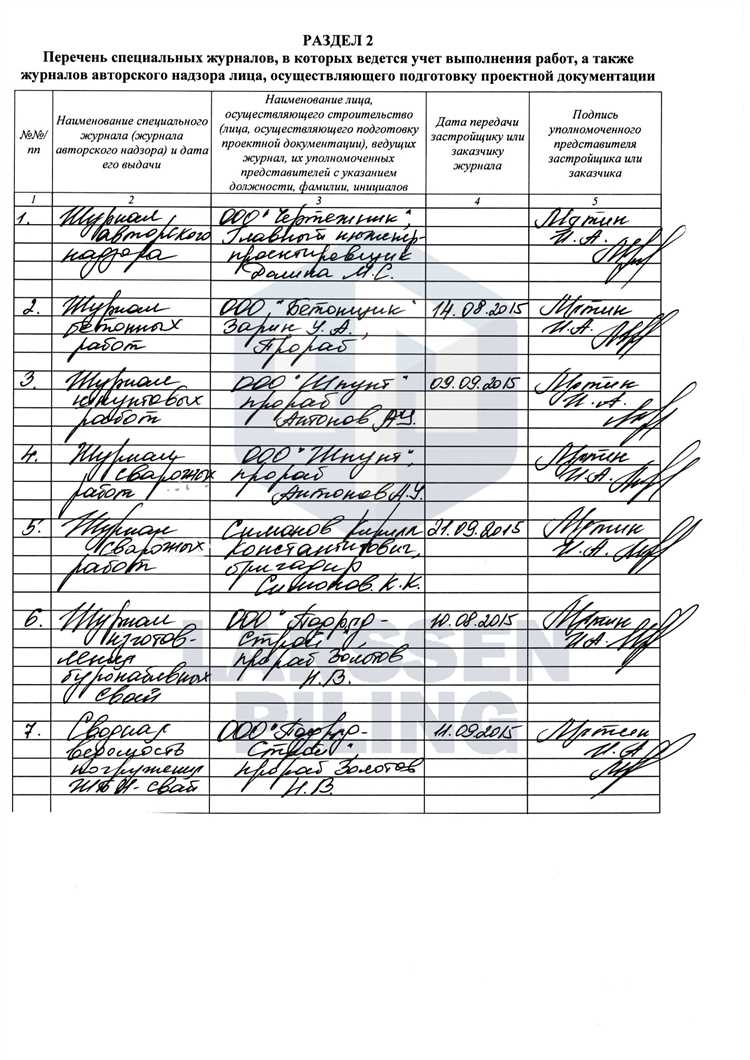 РАЗДЕЛ 2
Перечень специальных журналов, в которых ведется учет выполнения работ, а также
журналов авторского надзора лица, осуществляющего подготовку проектной документации
№№/
пп
Наименование специального
журнала (журнала
авторского надзора) и дата
его выдачи
Наименование лица,
осуществляющего строительство
(лица, осуществляющего подготовку
проектной документации), ведущих
журнал, их уполномоченных
представителей с указанием
должности, фамилии, инициалов
Дата передачи
застройщику или
заказчику
журнала
Подпись
уполномоченного
представителя
застройщика или
заказчика
1 2 3 4 5
1. Журнал ООО "Чертежник",
авторского Главный инженер- И.А.
надзора проектировщик
Долина М.С.
2. Журнал ООО "Бетонщик" 14.08.2015
бетонных Зарин У.А., И.А.
работ Прораб
3. Журнал ООО "Шпунт" 09.09.2015
шпунтовых прораб И.А.
работ Антонов А.У.
4. Журнал ООО "Шпунт",
сварожных прораб И.А.
работ Антонов А.У.
5. Журнал Симонов Кирилл 21.09.2015
сварожных Константинович, И.А.
работ бригадир
Симонов К.К.
6. Журнал ООО "Подряд- 10.08.2015
изготов- Строй" И.А.
ления прораб Золотов
буронабивных Н.В.
свай
7. Сводная ООО "Подряд- 11.09.2015
ведомость Строй", И.А
погружения прораб Золотов
свай Н.В.
LARSSEN
PILING